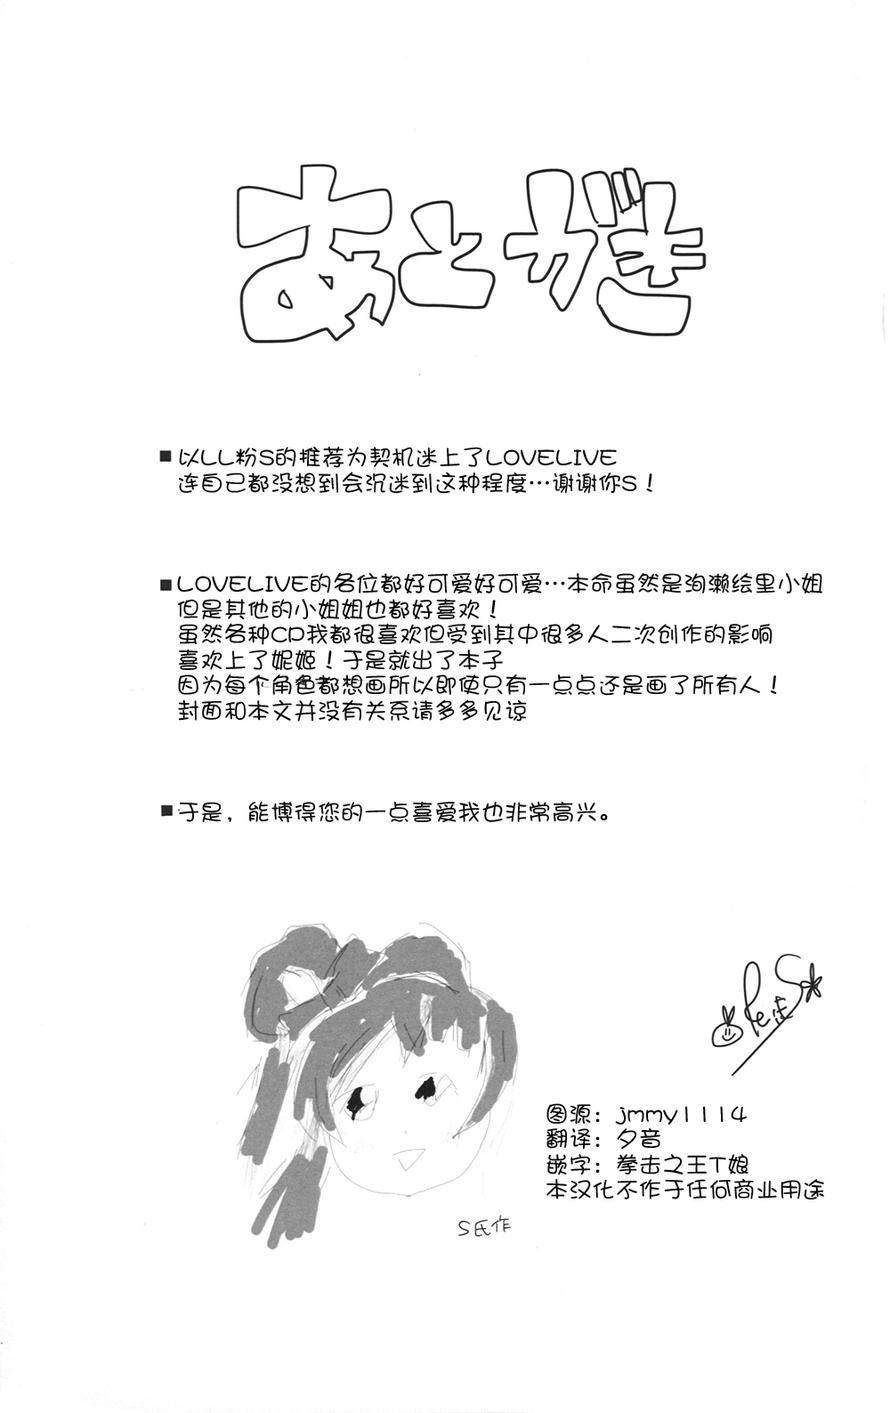 あとがき
■ 以LL粉S的推荐为契机迷上了LOVELIVE
连自己都没想到会沉迷到这种程度…谢谢你S！
■ LOVELIVE的各位都好可爱好可爱…本命虽然是洵濑绘里小姐
但是其他的小姐姐也都好喜欢！
虽然各种CP我都很喜欢但受到其中很多人二次创作的影响
喜欢上了妮姬！于是就出了本子
因为每个角色都想画所以即使只有一点点还是画了所有人！
封面和本文并没有关系请多多见谅
■ 于是，能博得您的一点喜爱我也非常高兴。
S氏作
图源：jmmy1114
翻译：夕音
嵌字：拳击之王T娘
本汉化不作于任何商业用途